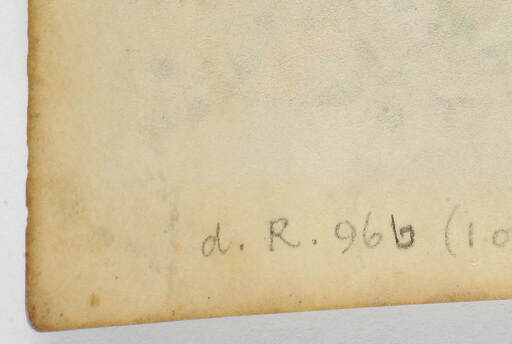 d. R. 96b (1.0